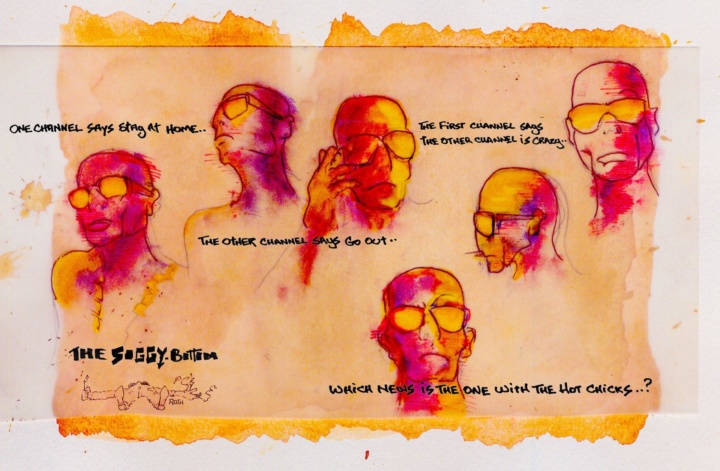 ONE CHANNEL SAYS STAY AT HOME..
THE OTHER CHANNEL SAYS GO OUT..
THE FIRST CHANNEL SAYS
THE OTHER CHANNEL IS CRAZY..
WHICH NEWS IS THE ONE WITH THE HOT CHICKS..?
THE SOGGY-BOTTOM